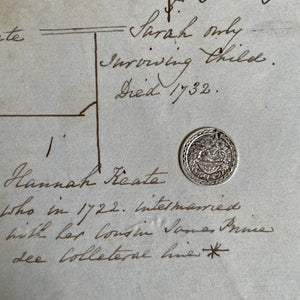 Sarah only
surviving Child.
Died 1732.
Hannah Keate
who in 1722. intermarried
with her cousin James Prince
see Collateral line *